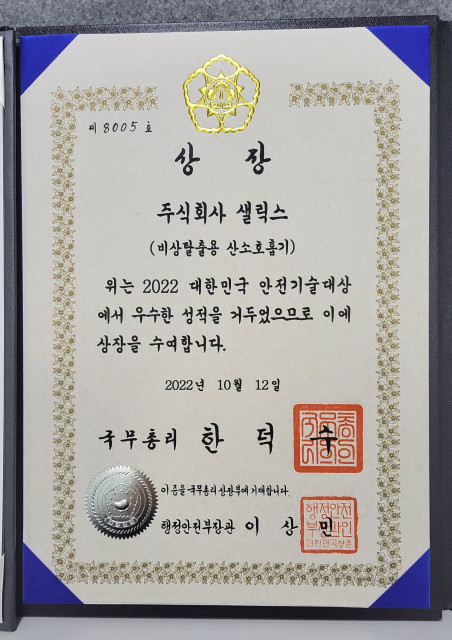 제 8005 호
상 장
주식회사 샐릭스
(비상탈출용 산소호흡기)
위는 2022 대한민국 안전기술대상
에서 우수한 성적을 거두었으므로 이에
상장을 수여합니다.
2022년 10월 12일
국무총리 한 덕 수
이 증을 국무총리상장부에 기재합니다.
행정안전부장관 이 상 민